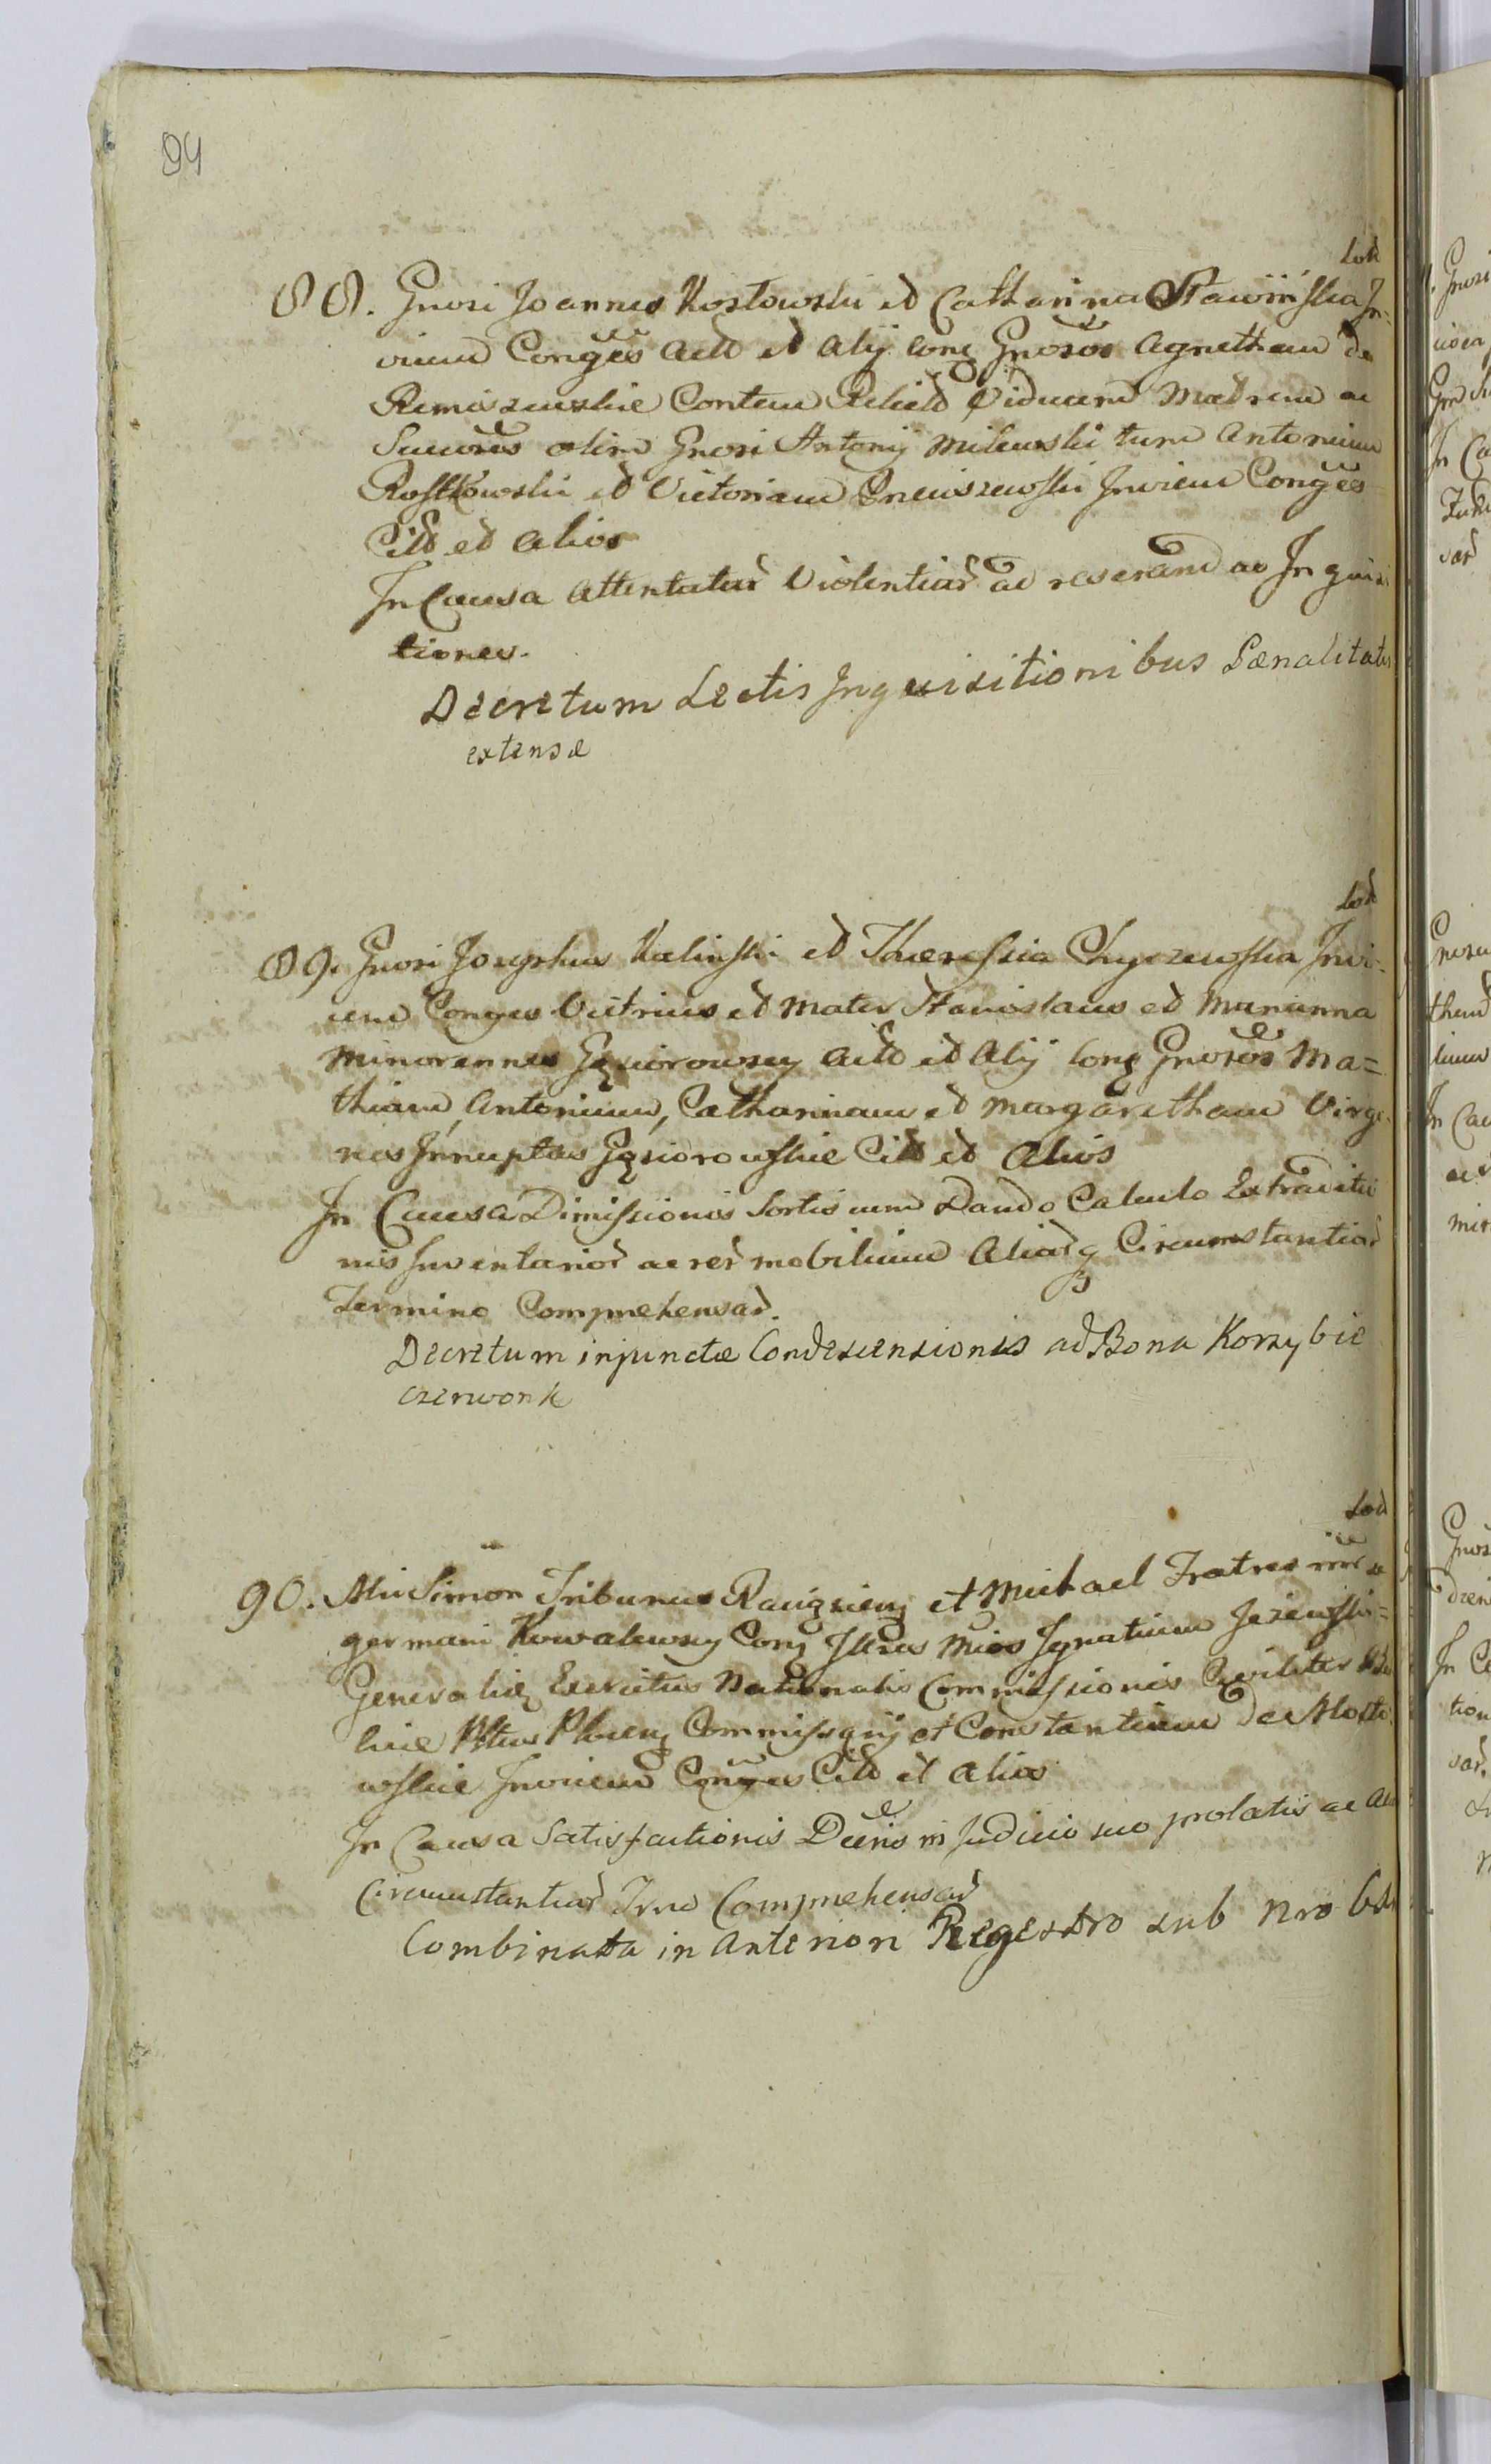 94
Lod
88. Gnosi Joannes Kosłowski et Catharina Sławińska In-
vicem Conges Actt et Alij. Conq Gnosos Agnetham de
Remiszewskie Contem Relictt Viduam Matrem ac
Succores olim Gnosi Antonij Milewski tum Antonium
Rostkowski et Victoriam Gneiszewski Invicem Conges
Citt et Alios
In Causa Attentatar Violentiar ac reserand ac Inquisi
tiones.
Decretum Lectis Inquisitionibus Pænalitatis
extensæ
Lod
89. Gnosi Josephus Kalinski et Theressia Chyczewska Invi-
cem Conges Vitrius et Mater Stanislaus et Marianna
Minorennes Gąsiorowscy Actt et Alij Conq Gnosos Ma=
thiam, Antonium, Catharinam et Margaretham Virgi-
nes Innuptas Gąsiorowskie Citt et Alios
In Causa Dimissionis Sortis cum Dando Calculo Extraditio
nis Inventarior ac rer mobilium Aliarq Circumstantiar
Termino Comprehensar.
Decretum injunctæ Condescensionis ad Bona Korzybie
czerwonk
Lod
90. Mci Simon Tribunus et Michael Fratres
germani Kowalewscy Conq Illres Mcos Ignatium Jeziewski=
Generaliq Exercitus Nationalis Commissionis Civiliter
Commissarij et Constantiam de Mosto
wskie Invicem Conges Citt et Alios
In Causa Satisfactionis Dećris in Judicio suo prolatis ac
Circumstantiar Trno Comprehensar
Combinatta in Anteriori Regestro sub Nro